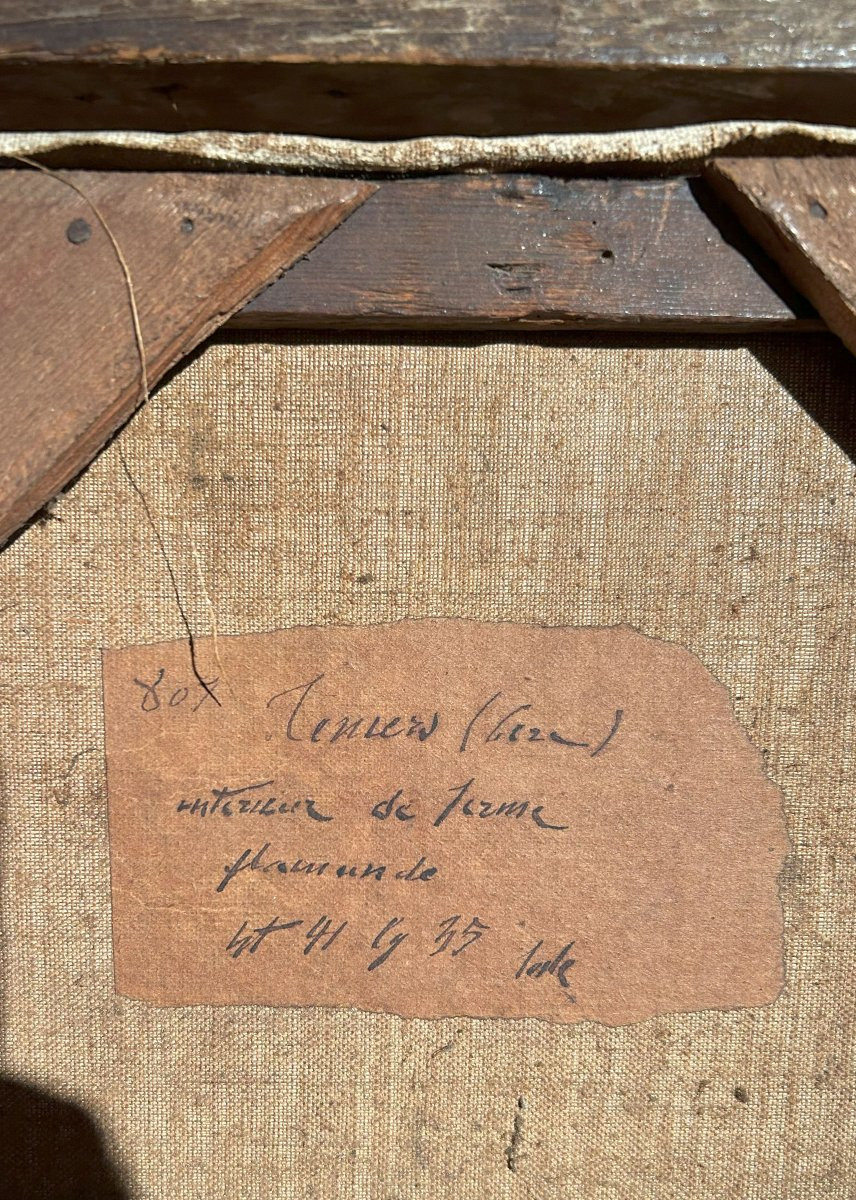 807 Teniers (Gen)
interieur de ferme
flamande
ht 41 lg 35 toile